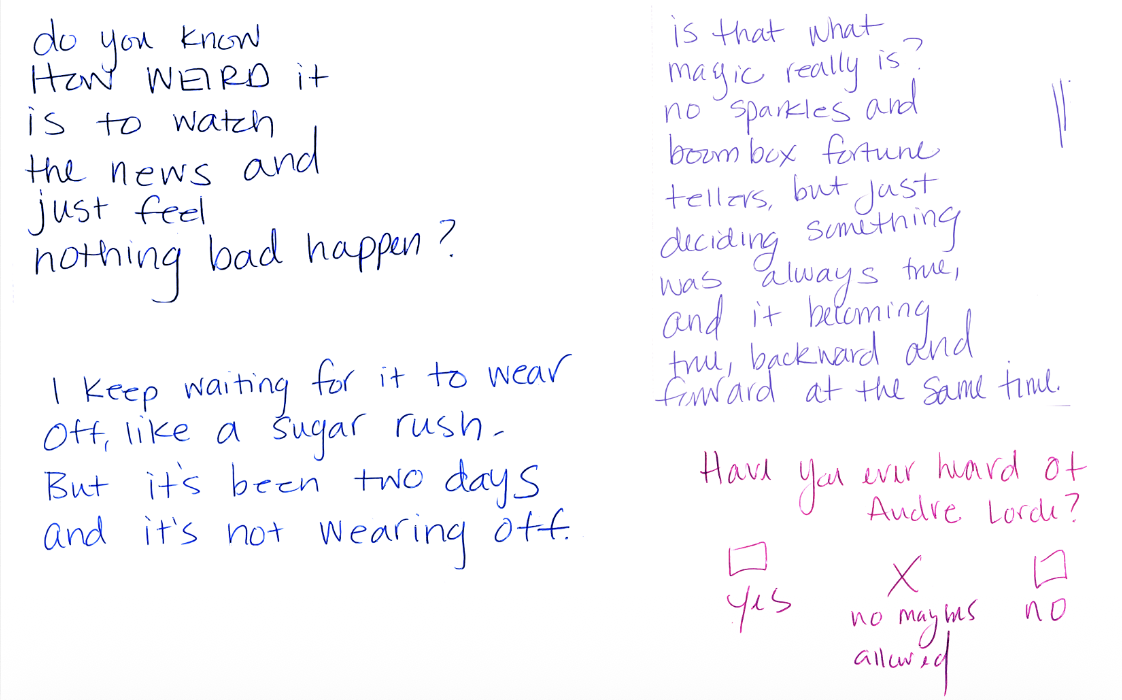 do you know
HOW WEIRD it
is to watch
the news and
just feel
nothing bad happen?
I keep waiting for it to wear
off, like a sugar rush.
But it's been two days
and it's not wearing off.
is that what
magic really is?
no sparkles and
boom box fortune
tellers, but just
deciding something
was always true,
and it becoming
true, backward and
forward at the same time.
Have you ever heard of
Audre Lorde?
yes
no maybes
allowed
no